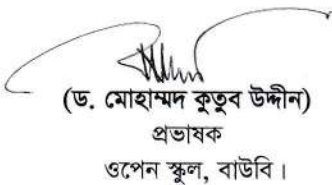 (ড. মোহাম্মদ কুতুব উদ্দীন)
প্রভাষক
ওপেন স্কুল, বাউবি।